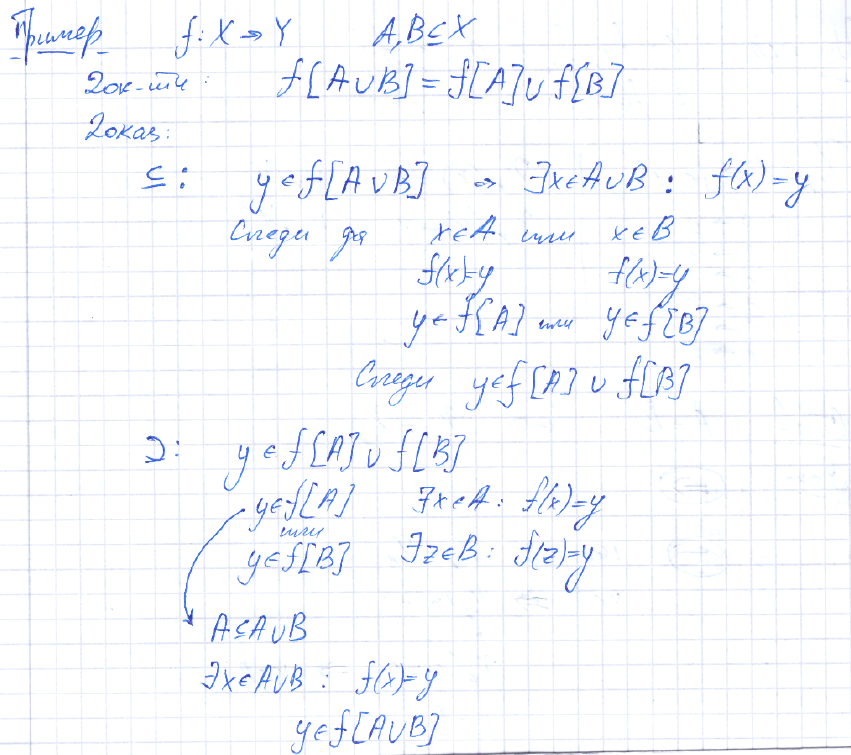 Пример f: X → Y A, B ⊆ X
Док-ти: f[A∪B] = f[A] ∪ f[B]
Доказ:
⊆: y ∈ f[A∪B] ⇒ ∃x∈A∪B : f(x)=y
Следи да x∈A или x∈B
f(x)=y f(x)=y
y∈f[A] или y∈f[B]
Следи y∈f[A] ∪ f[B]
⊇: y ∈ f[A] ∪ f[B]
y∈f[A] ∃x∈A: f(x)=y
или
y∈f[B] ∃z∈B: f(z)=y
A⊆A∪B
∃x∈A∪B : f(x)=y
y∈f[A∪B]